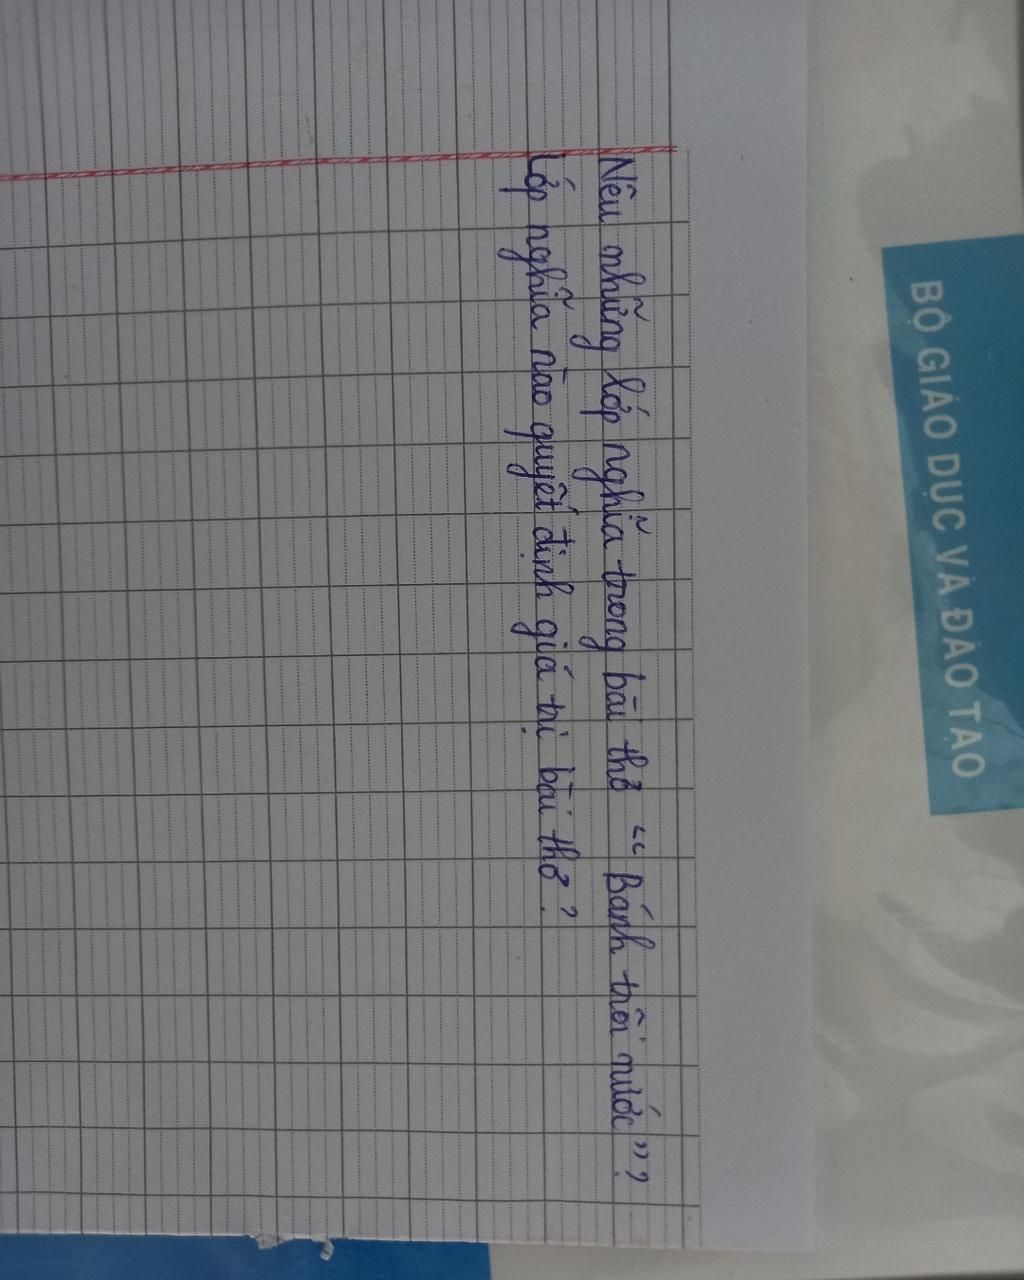 Nêu những lớp nghĩa trong bài thơ "Bánh trôi nước"?
Lớp nghĩa nào quyết định giá trị bài thơ?
BỘ GIÁO DỤC VÀ ĐÀO TẠO